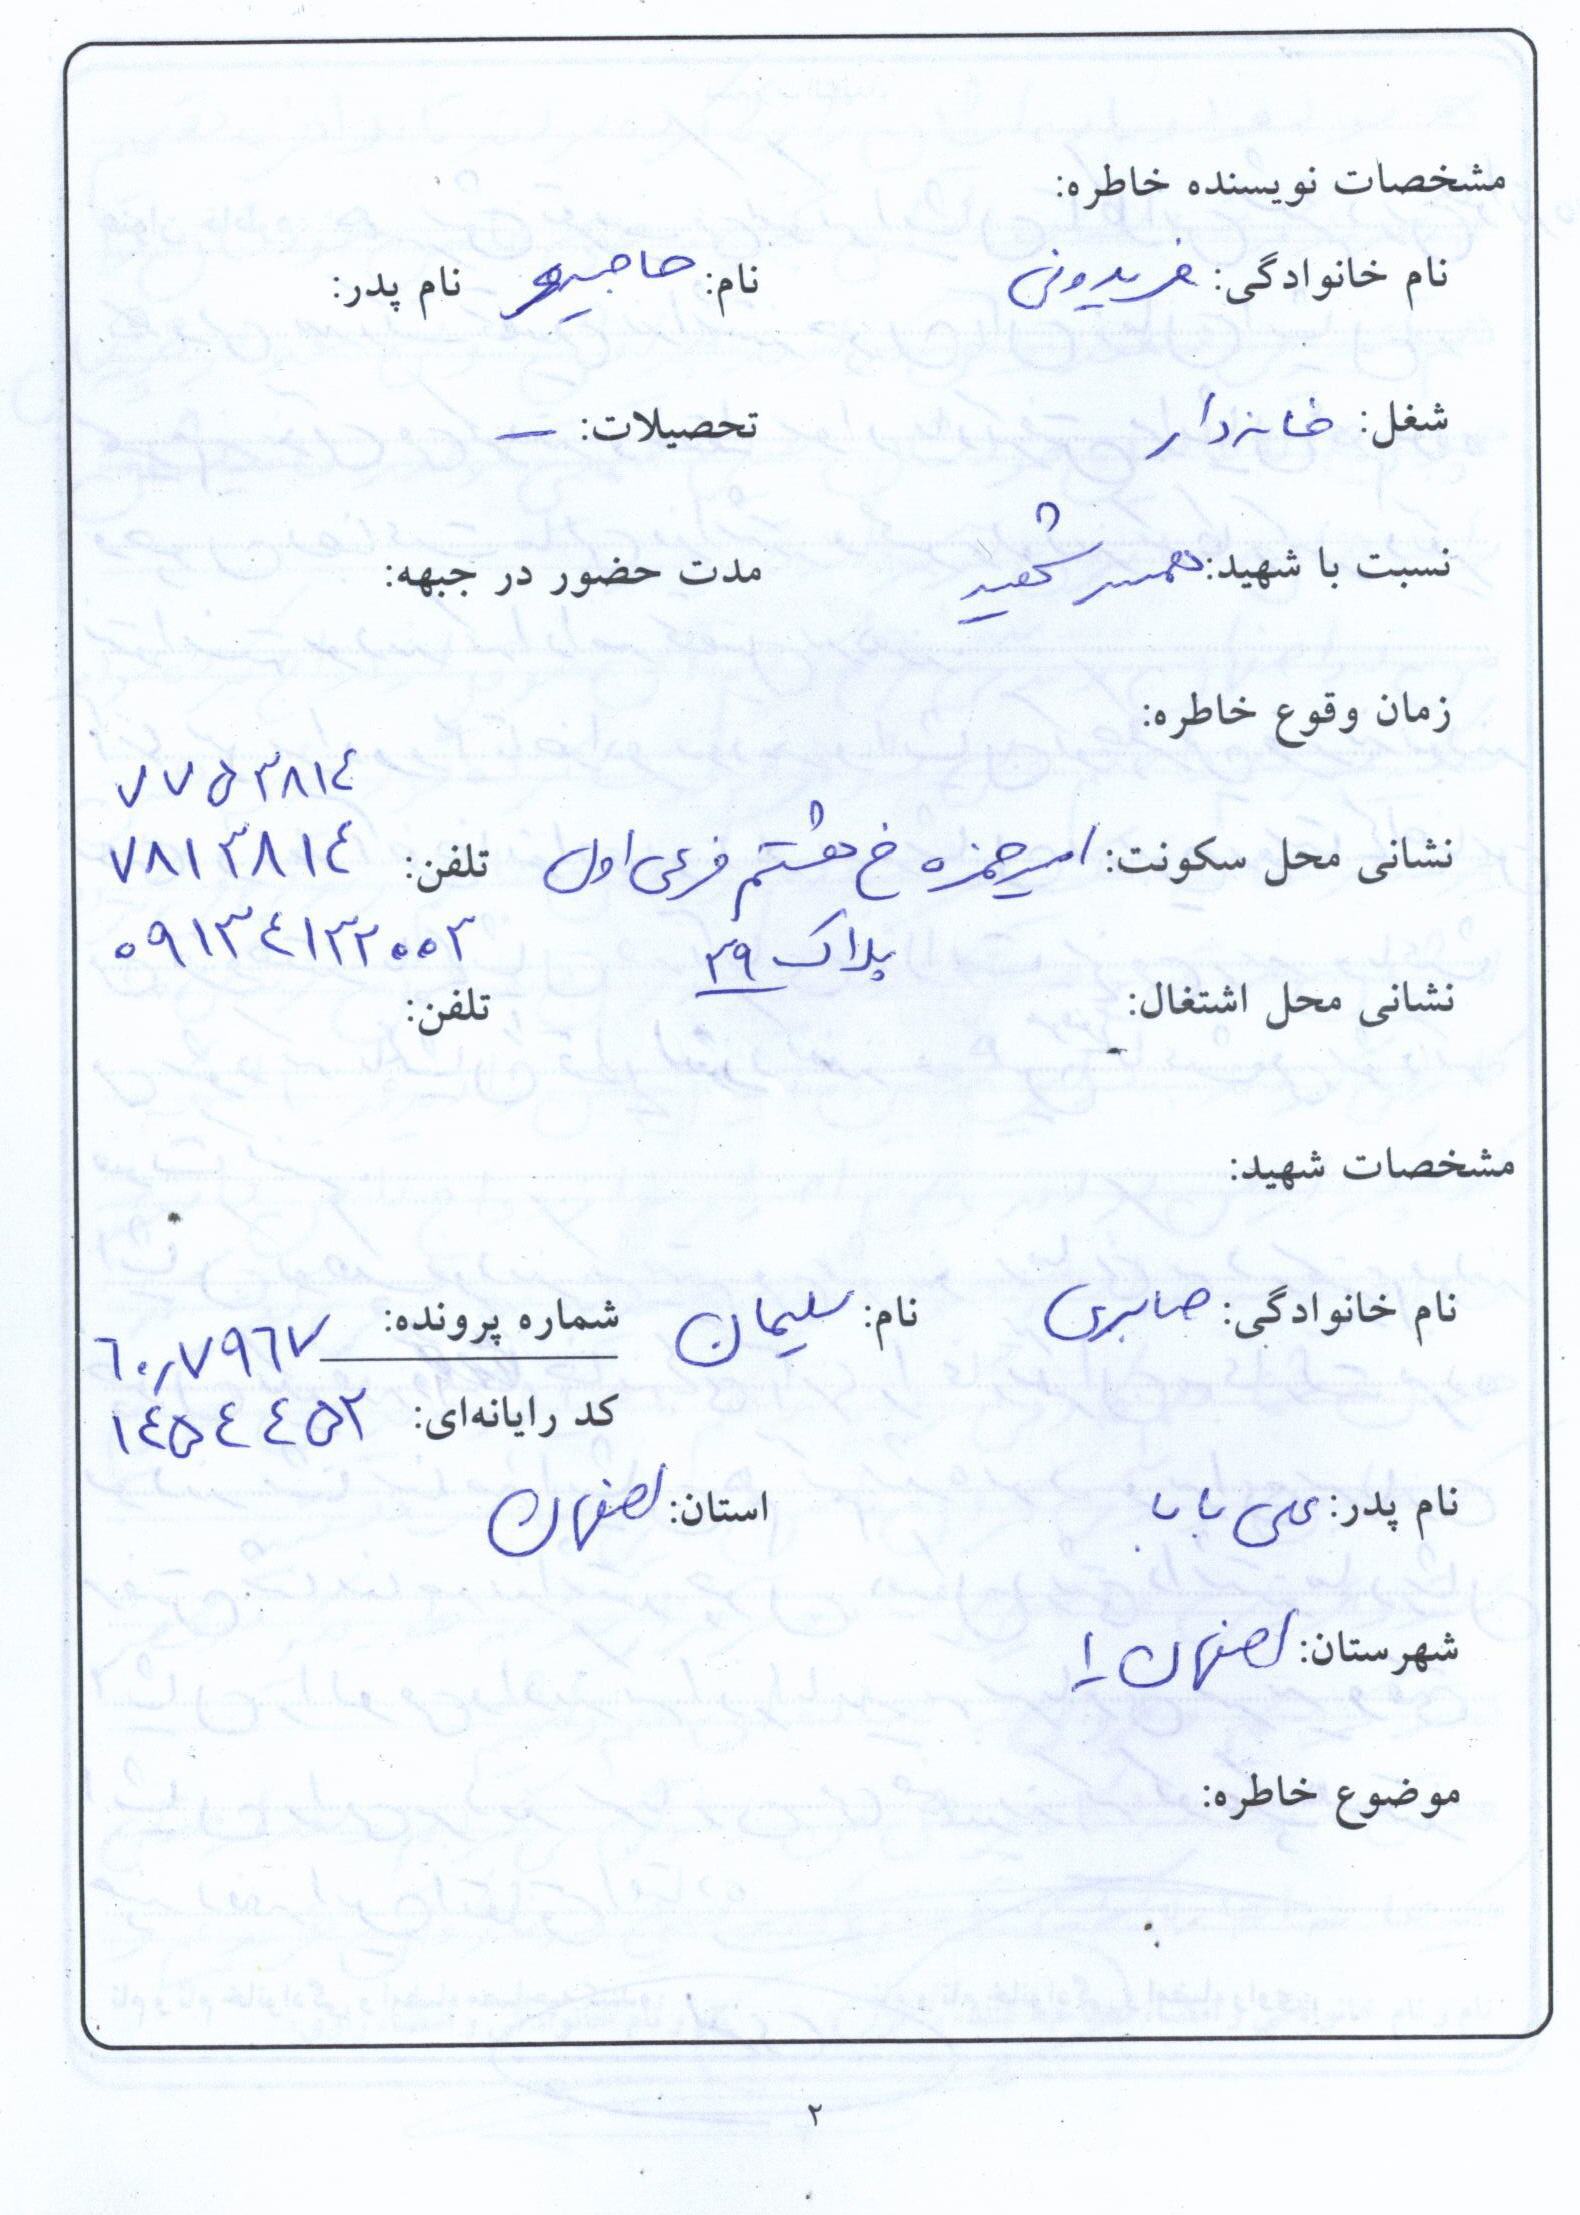 مشخصات نویسنده خاطره:
نام خانوادگی: فریدونی نام: نام پدر:
شغل: خانه‌دار تحصیلات: –
نسبت با شهید: همسر شهید مدت حضور در جبهه:
زمان وقوع خاطره:
۷۷۵۳۸۱٤
نشانی محل سکونت: امیرحمزه خ هشتم فرعی اول تلفن: ۷۸۱۳۸۱٤
پلاک ۳۹ ۰۹۱۳٤۱۳۲۰۰۳
نشانی محل اشتغال: تلفن:
مشخصات شهید:
نام خانوادگی: صابری نام: سلیمان شماره پرونده: ٦۰۷۹٦۷
کد رایانه‌ای: ۱٤۵٤٤۵۲
نام پدر: علی بابا استان: اصفهان
شهرستان: اصفهان ۱
موضوع خاطره:
۲